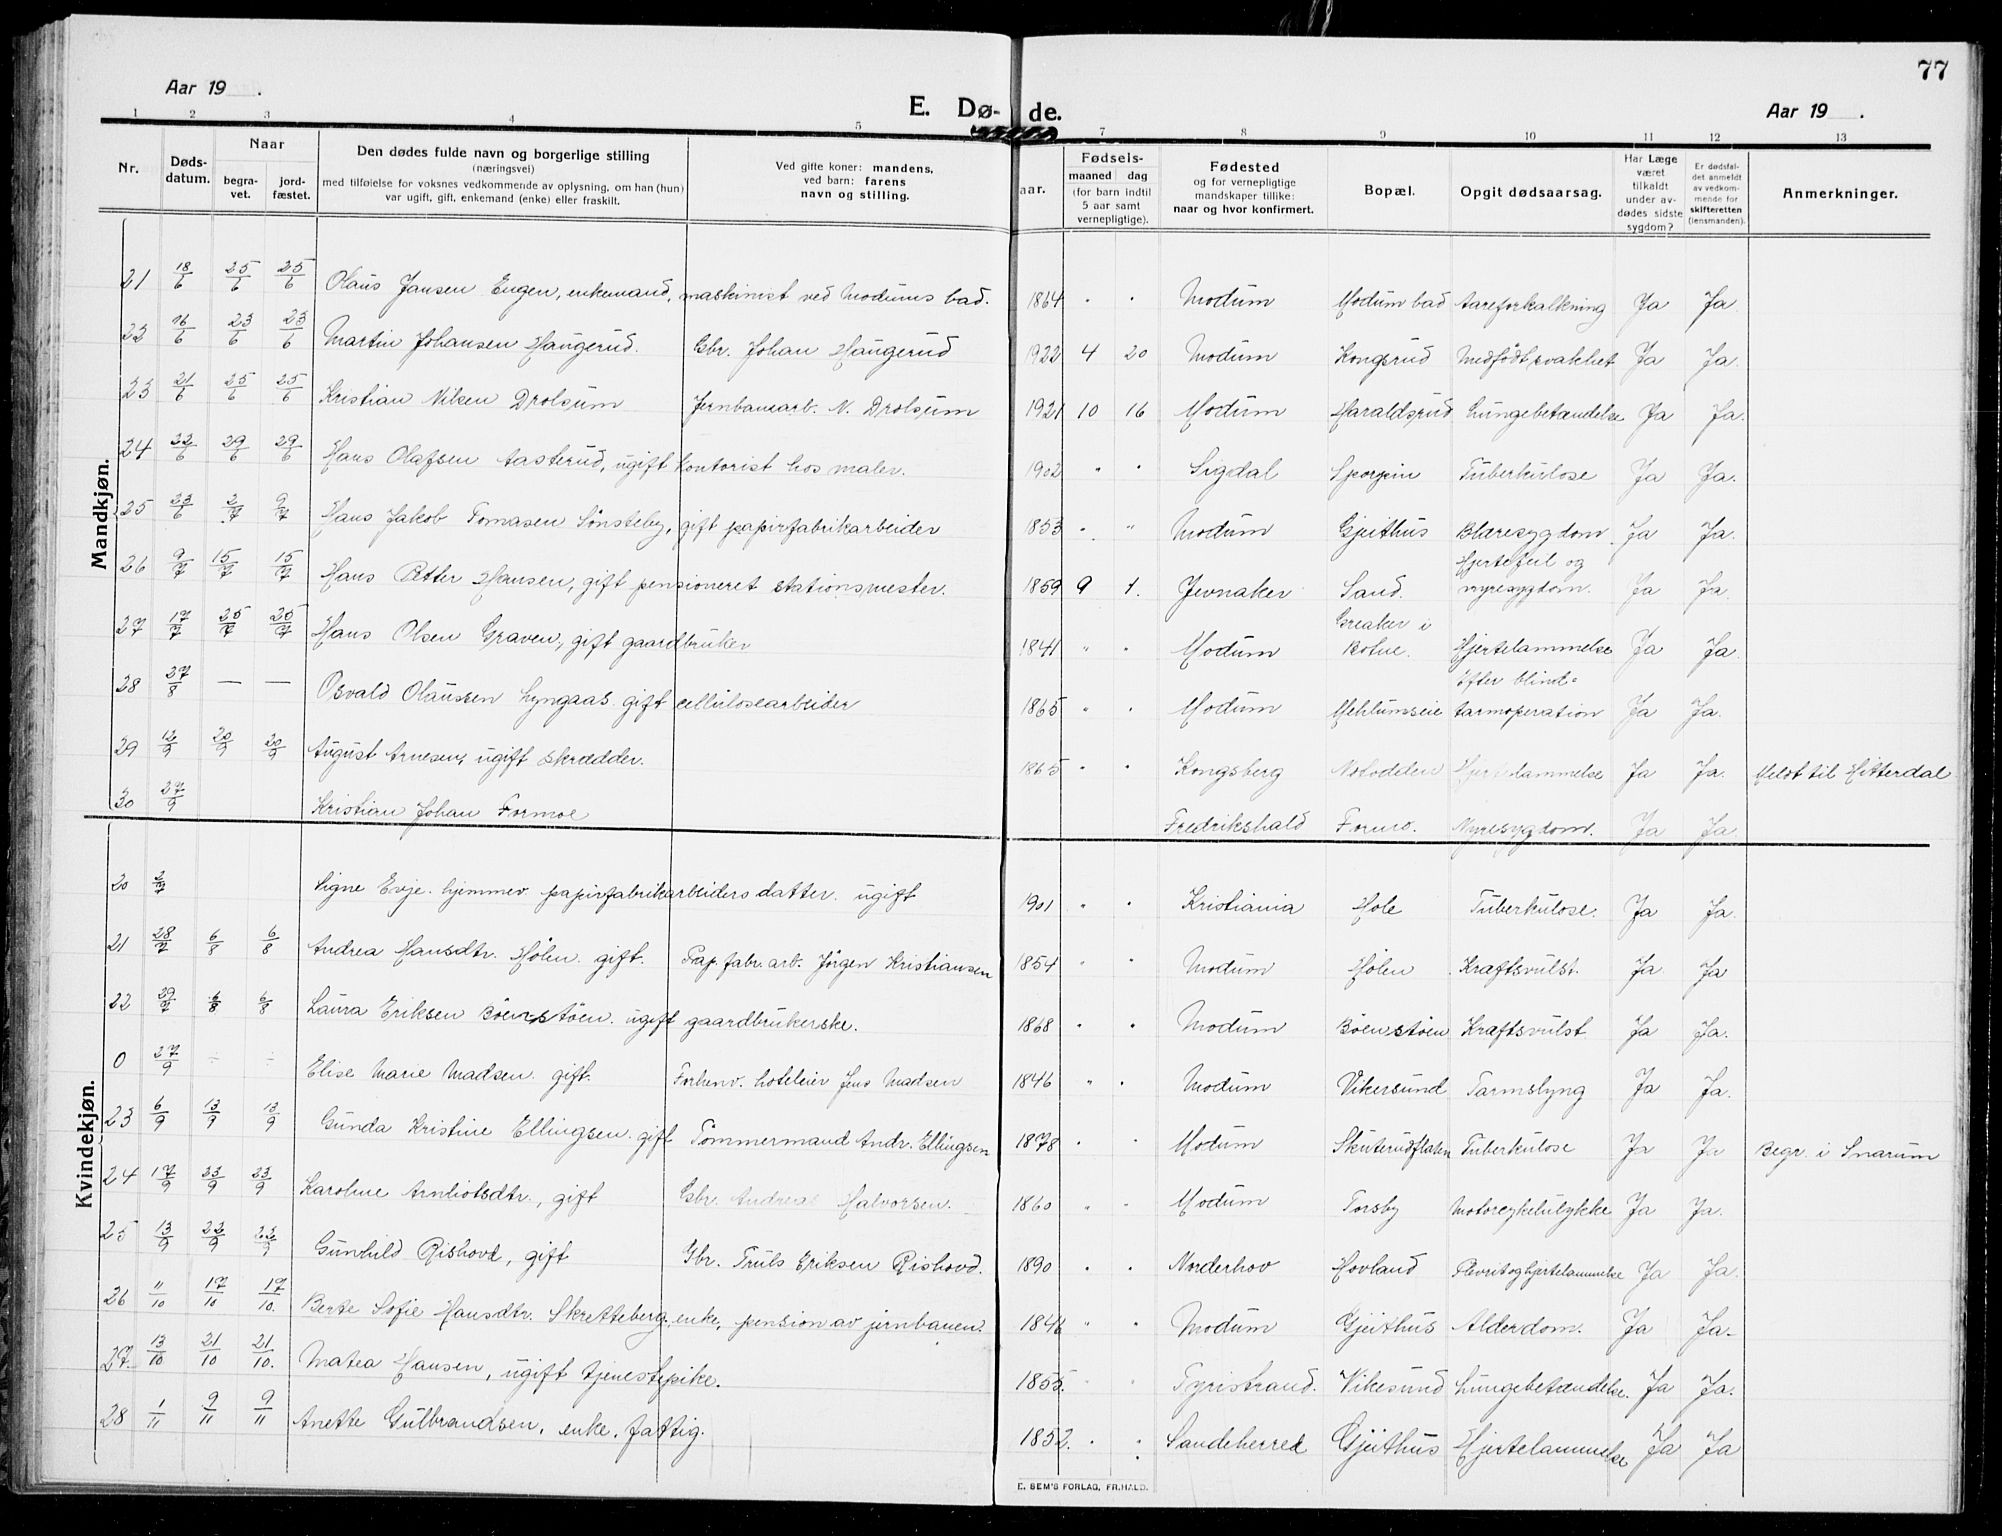 77
Aar 19    .
E. Dø- de.
Aar 19    .
1 2 3 4 5 7 8 9 10 11 12 13
Nr.
Døds-datum.
Naar
begra-vet.
jord-fæstet.
Den dødes fulde navn og borgerlige stilling
(næringsvei)
med tilføielse for voksnes vedkommende av oplysning, om han (hun)
var ugift, gift, enkemand (enke) eller fraskilt.
Ved gifte koner: mandens,
ved barn: farens
navn og stilling.
aar.
Fødsels-
maaned dag
(for barn indtil
5 aar samt
vernepligtige).
Fødested
og for vernepligtige
mandskaper tillike:
naar og hvor konfirmert.
Bopæl.
Opgit dødsaarsag.
Har Læge
været
tilkaldt
under av-
dødes sidste
sygdom?
Er dødsfal-
det anmeldt
av vedkom-
mende for
skifteretten
(lensmanden).
Anmerkninger.
Mandkjøn.
21 18/6 25/6 25/6 Olaus Jansen Engen, enkemand, maskinist ved Modums bad. 1864 " " Modum Modum bad Aareforkalkning Ja Ja.
22 16/6 23/6 23/6 Martin Johansen Haugerud. Gbr. Johan Haugerud 1922 4 20 Modum Kongsrud Medfødt svakhet Ja Ja.
23 21/6 25/6 25/6 Kristian Nilsen Drolsum Jernbanearb. N. Drolsum 1921 10 16 Modum Haraldsrud Lungebetændelse Ja Ja.
24 22/6 29/6 29/6 Hans Olafsen Aasterud, ugift kontorist hos maler. 1902 " " Sigdal Tuberkulose Ja Ja.
25 23/6 2/7 9/7 Hans Jakob Tomasen Sønsteby, gift papirfabrikarbeider 1853 " " Modum Gjeithus Blæresygdom. Ja Ja.
26 9/7 15/7 15/7 Hans Petter Hansen, gift pensioneret stationsmester. 1859 9 1. Jevnaker Sand. Hjertefeil og nyresygdom. Ja Ja.
27 17/7 25/7 25/7 Hans Olsen Graven, gift gaardbruker 1841 " " Modum Greaker i Botne. Hjertelammelse Ja Ja.
28 27/8 — — Osvald Olaussen Lyngaas gift cellulosearbeider 1865 " " Modum Mehlumseie Efter blind- tarmoperation Ja Ja.
29 12/9 20/9 20/9 August Arnesen, ugift skrædder. 1865 " " Kongsberg Notodden Hjertelammelse Ja Ja. Meldt til Hitterdal
30 27/9 Kristian Johan Formoe Fredrikshald Formo. Nyresygdom. Ja Ja
Kvindekjøn.
20 2/7 Signe Evje. hjemmev papirfabrikarbeiders datter. ugift 1901 " " Kristiania Hole Tuberkulose. Ja Ja.
21 28/7 6/8 6/8 Andrea Hansdtr. Hølen. gift. Pap.fabr.arb. Jørgen Kristiansen 1854 " " Modum Hølen Kræftsvulst. Ja Ja
22 29/7 6/8 6/8 Laura Eriksen Bøenstøen. ugift gaardbrukerske. 1868 " " Modum Bøenstøen Kræftsvulst Ja Ja.
0 27/9 ÷ ÷ Elise Marie Madsen. gift. Forhenv. hoteleier Jens Madsen 1846 " " Modum Vikersund Tarmslyng Ja Ja.
23 6/9 13/9 13/9 Gunda Kristine Ellingsen. gift Tømmermand Andr. Ellingsen 1878 " " Modum Skuterudflaten Tuberkulose Ja Ja Begr. i Snarum
24 17/9 23/9 23/9 Karoline Arnliotsdtr., gift Gbr. Andreas Halvorsen. 1860 " " Modum Torsby Motorcykelulykke Ja Ja.
25 13/9 22/9 22/9 Gunhild Rishovd, gift Gbr. Truls Eriksen Rishovd. 1890 " " Norderhov Hovland Plevrit og hjertelammelse Ja Ja.
26 11/10 17/10 17/10. Berte Sofie Hansdtr. Skretteberg, enke, pension av jernbanen. 1846 " " Modum Gjeithus Alderdom. Ja Ja.
27. 13/10 21/10 21/10. Matea Hansen, ugift tjenestepike. 1855. " " Tyristrand. Vikesund Lungebetændelse. Ja Ja.
28 1/11 9/11 9/11 Anette Gulbrandsen, enke, fattig. 1852. " " Sandeherred Gjeithus Hjertelammelse Ja Ja
E. SEM'S FORLAG, FR.HALD.